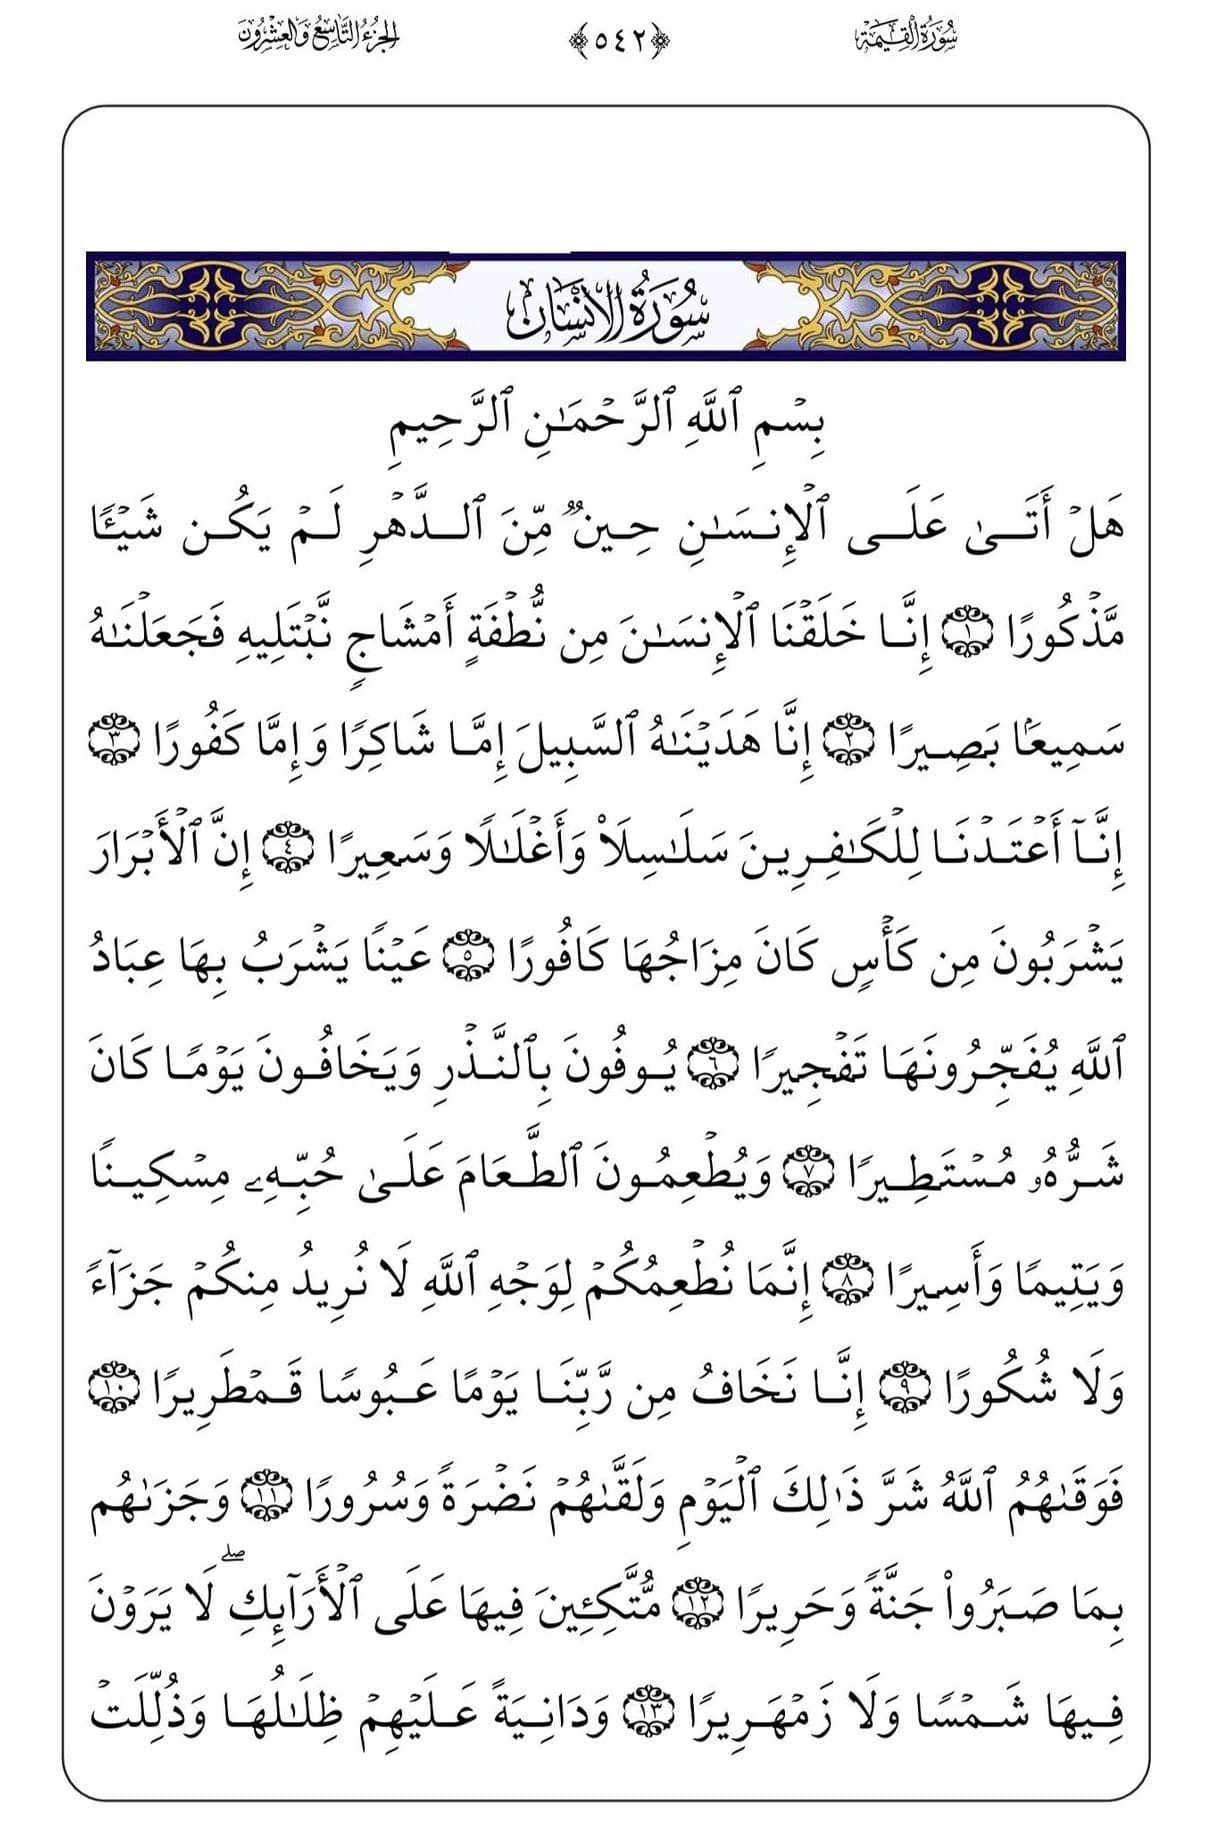 سُورَةُ القِيَٰمَة ﴿٥٤٢﴾ الجُزْءُ التَّاسِعُ وَالعِشْرُونَ
سُورَةُ الإِنسَان
بِسْمِ ٱللَّهِ ٱلرَّحْمَـٰنِ ٱلرَّحِيمِ
هَلْ أَتَىٰ عَلَى ٱلْإِنسَـٰنِ حِينٌ مِّنَ ٱلدَّهْرِ لَمْ يَكُن شَيْـًٔا
مَّذْكُورًا ١ إِنَّا خَلَقْنَا ٱلْإِنسَـٰنَ مِن نُّطْفَةٍ أَمْشَاجٍ نَّبْتَلِيهِ فَجَعَلْنَـٰهُ
سَمِيعًۢا بَصِيرًا ٢ إِنَّا هَدَيْنَـٰهُ ٱلسَّبِيلَ إِمَّا شَاكِرًا وَإِمَّا كَفُورًا ٣
إِنَّآ أَعْتَدْنَا لِلْكَـٰفِرِينَ سَلَـٰسِلَا۟ وَأَغْلَـٰلًا وَسَعِيرًا ٤ إِنَّ ٱلْأَبْرَارَ
يَشْرَبُونَ مِن كَأْسٍ كَانَ مِزَاجُهَا كَافُورًا ٥ عَيْنًا يَشْرَبُ بِهَا عِبَادُ
ٱللَّهِ يُفَجِّرُونَهَا تَفْجِيرًا ٦ يُوفُونَ بِٱلنَّذْرِ وَيَخَافُونَ يَوْمًا كَانَ
شَرُّهُۥ مُسْتَطِيرًا ٧ وَيُطْعِمُونَ ٱلطَّعَامَ عَلَىٰ حُبِّهِۦ مِسْكِينًا
وَيَتِيمًا وَأَسِيرًا ٨ إِنَّمَا نُطْعِمُكُمْ لِوَجْهِ ٱللَّهِ لَا نُرِيدُ مِنكُمْ جَزَآءً
وَلَا شُكُورًا ٩ إِنَّا نَخَافُ مِن رَّبِّنَا يَوْمًا عَبُوسًا قَمْطَرِيرًا ١٠
فَوَقَىٰهُمُ ٱللَّهُ شَرَّ ذَٰلِكَ ٱلْيَوْمِ وَلَقَّىٰهُمْ نَضْرَةً وَسُرُورًا ١١ وَجَزَىٰهُم
بِمَا صَبَرُوا۟ جَنَّةً وَحَرِيرًا ١٢ مُّتَّكِـِٔينَ فِيهَا عَلَى ٱلْأَرَآئِكِ ۖ لَا يَرَوْنَ
فِيهَا شَمْسًا وَلَا زَمْهَرِيرًا ١٣ وَدَانِيَةً عَلَيْهِمْ ظِلَـٰلُهَا وَذُلِّلَتْ